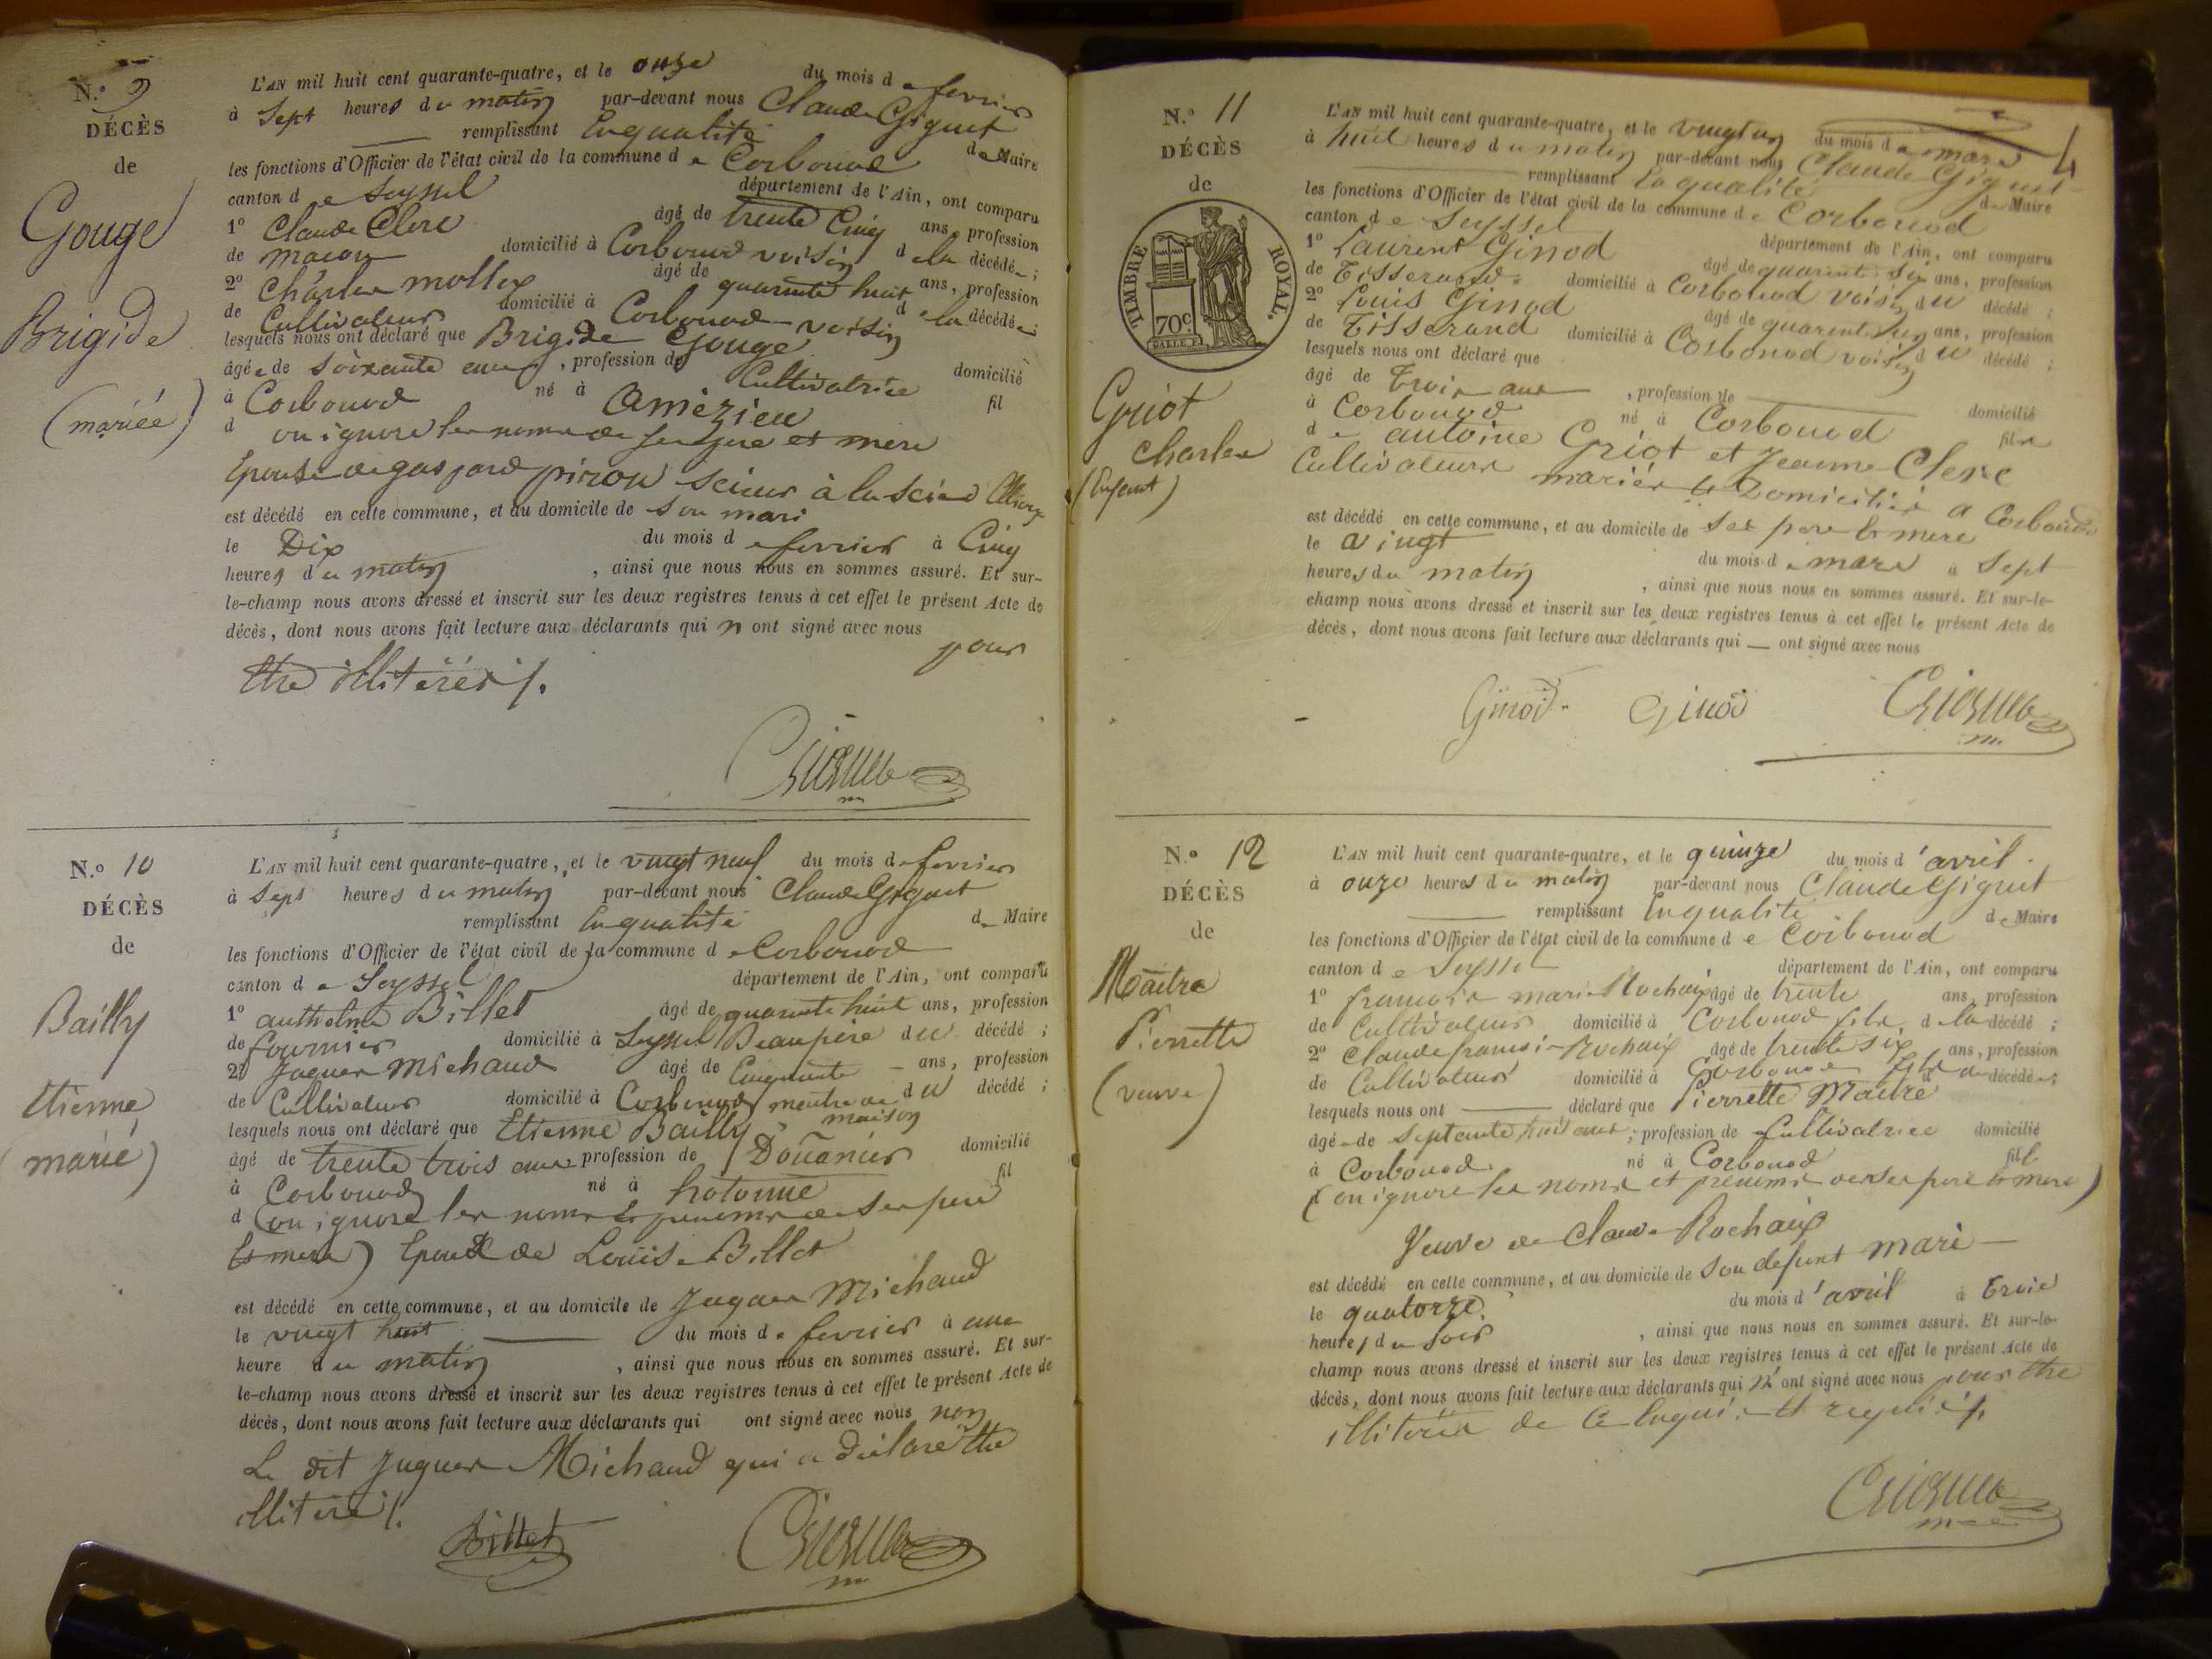 N.° 9
DÉCÈS
de
Gouge
Brigide
(mariée)
L'AN mil huit cent quarante-quatre, et le onze du mois de fevrier
à Sept heures du matin par-devant nous Claude Giguet
remplissant En qualité de Maire
les fonctions d'Officier de l'état civil de la commune de Corbonod
canton de Seyssel département de l'Ain, ont comparu
1° Claude Clerc âgé de trente Cinq ans, profession
de maçon domicilié à Corbonod voisin de la décédée;
2° Charles mollex âgé de quarante huit ans, profession
de Cultivateur domicilié à Corbonod voisin de la décédée;
lesquels nous ont déclaré que Brigide Gouge
âgée de soixante ans, profession de Cultivatrice domicilié
à Corbonod né à Amézieu fil
d on ignore les noms de ses père et mère
Epouse de gaspard pinon scieur à la scie
est décédé en cette commune, et au domicile de son mari
le Dix du mois de fevrier à Cinq
heures du matin, ainsi que nous nous en sommes assuré. Et sur-
le-champ nous avons dressé et inscrit sur les deux registres tenus à cet effet le présent Acte de
décès, dont nous avons fait lecture aux déclarants qui n ont signé avec nous pour
être illitérés /.
N.° 10
DÉCÈS
de
Bailly
Etienne
(marié)
L'AN mil huit cent quarante-quatre, et le vingt neuf du mois de fevrier
à Sept heures du matin par-devant nous Claude Giguet
remplissant En qualité de Maire
les fonctions d'Officier de l'état civil de la commune de Corbonod
canton de Seyssel département de l'Ain, ont comparu
1° anthelme Billet âgé de quarante huit ans, profession
de fournier domicilié à Seyssel Beaupère du décédé;
2° Jaques Michaud âgé de Cinquante ans, profession
de Cultivateur domicilié à Corbonod maitre de maison du décédé;
lesquels nous ont déclaré que Etienne Bailly
âgé de trente trois ans profession de Douanier domicilié
à Corbonod né à hotonne fil
d (on ignore les noms & prenoms de ses pere
et mere) Epoux de Louise Billet
est décédé en cette commune, et au domicile de Jaques Michaud
le vingt huit du mois de fevrier à une
heure du matin, ainsi que nous nous en sommes assuré. Et sur-
le-champ nous avons dressé et inscrit sur les deux registres tenus à cet effet le présent Acte de
décès, dont nous avons fait lecture aux déclarants qui ont signé avec nous non
Le dit Jaques Michaud qui a déclaré être
illitéré /.
Billet
4
N.° 11
DÉCÈS
de
TIMBRE ROYAL.
70c.
Griot
Charles
(Enfant)
L'AN mil huit cent quarante-quatre, et le vingt un du mois de mars
à huit heures du matin par-devant nous Claude Giguet
remplissant En qualité de Maire
les fonctions d'Officier de l'état civil de la commune de Corbonod
canton de Seyssel département de l'Ain, ont comparu
1° Laurent Ginod âgé de quarante six ans, profession
de Tisserand domicilié à Corbonod voisin du décédé;
2° Louis Ginod âgé de ans, profession
de Tisserand domicilié à Corbonod voisin du décédé;
lesquels nous ont déclaré que
âgé de Trois ans, profession de domicilié
à Corbonod né à Corbonod fils
de antoine Griot et Jeanne Clerc
Cultivateurs mariés & Domiciliés a Corbonod
est décédé en cette commune, et au domicile de ses pere & mere
le vingt du mois de mars à Sept
heures du matin, ainsi que nous nous en sommes assuré. Et sur-le-
champ nous avons dressé et inscrit sur les deux registres tenus à cet effet le présent Acte de
décès, dont nous avons fait lecture aux déclarants qui — ont signé avec nous
Ginod. Ginod
N.° 12
DÉCÈS
de
Maitre
Pierrette
(veuve)
L'AN mil huit cent quarante-quatre, et le quinze du mois d'avril
à onze heures du matin par-devant nous Claude Giguet
remplissant En qualité de Maire
les fonctions d'Officier de l'état civil de la commune de Corbonod
canton de Seyssel département de l'Ain, ont comparu
1° françois marie Rochaix âgé de trente ans, profession
de Cultivateur domicilié à Corbonod fils de la décédé;
2° Claude françois Rochaix âgé de trente six ans, profession
de Cultivateur domicilié à Corbonod fils de décédée;
lesquels nous ont déclaré que Pierrette Maitre
âgée de septante huit ans; profession de Cultivatrice domicilié
à Corbonod né à Corbonod fill
d (on ignore les noms et prenoms de ses pere & mere)
Veuve de Claude Rochaix
est décédé en cette commune, et au domicile de son defunt mari
le quatorze du mois d'avril à trois
heures du soir, ainsi que nous nous en sommes assuré. Et sur-le-
champ nous avons dressé et inscrit sur les deux registres tenus à cet effet le présent Acte de
décès, dont nous avons fait lecture aux déclarants qui n'ont signé avec nous pour être
illiterés de ce Enquis et requis /.